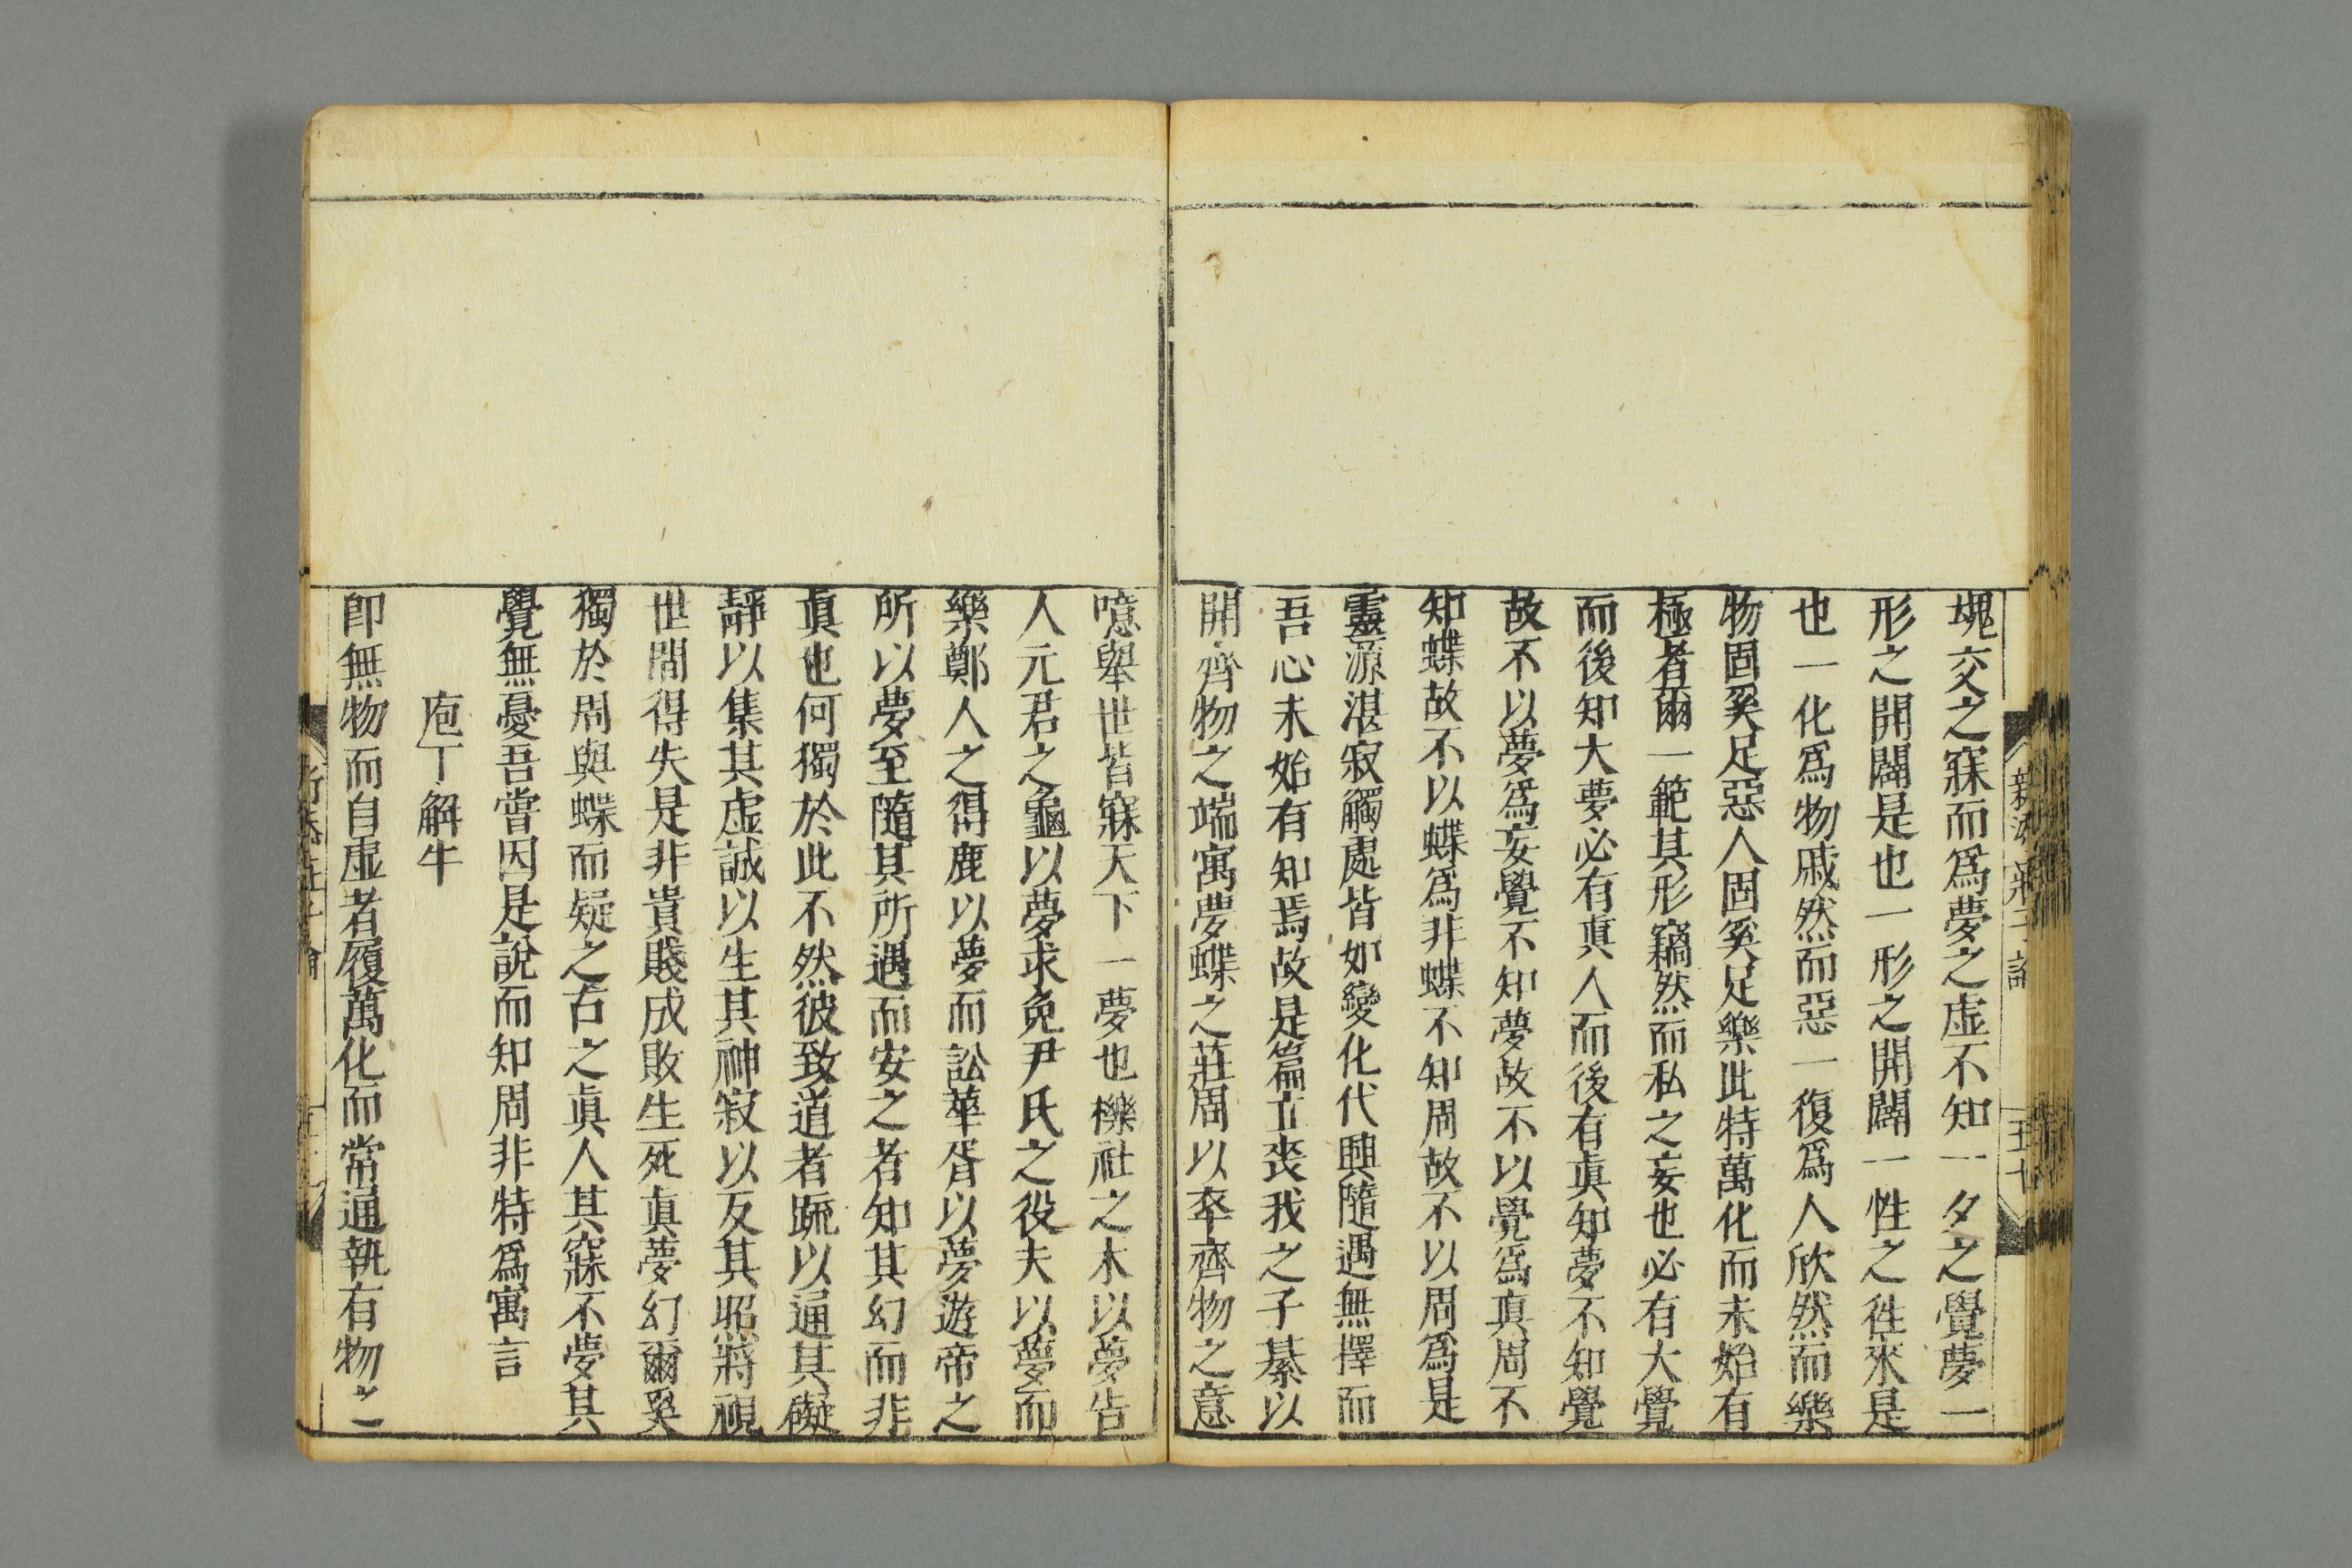 塊交之寐而爲夢之虛不知一夕之覺夢一
形之開闔是也一形之開闔一性之徃來是
也一化爲物戚然而惡一復爲人欣然而樂
物固奚足惡人固奚足樂此特萬化而未始有
極者爾一範其形竊然而私之妄也必有大覺
而後知大夢必有眞人而後有眞知夢不知覺
故不以夢爲妄覺不知夢故不以覺爲眞周不
知蝶故不以蝶爲非蝶不知周故不以周爲是
靈源湛寂觸處皆如變化代興隨遇無擇而
吾心未始有知焉故是篇立喪我之子綦以
開齊物之端寓夢蝶之莊周以卒齊物之意
噫舉世皆寐天下一夢也櫟社之木以夢告
人元君之龜以夢求免尹氏之役夫以夢而
樂鄭人之得鹿以夢而訟華胥以夢遊帝之
所以夢至隨其所遇而安之者知其幻而非
眞也何獨於此不然彼致道者疏以通其礙
靜以集其虛誠以生其神寂以反其照將視
世間得失是非貴賤成敗生死眞夢幻爾奚
獨於周與蝶而疑之古之眞人其寐不夢其
覺無憂吾嘗因是說而知周非特爲寓言
庖丁解牛
卽無物而自虛者履萬化而常通執有物之